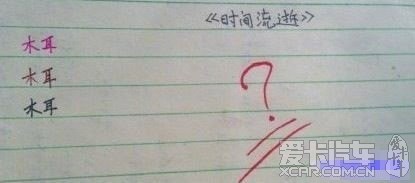 《时间流逝》
木耳
木耳
木耳
?
爱卡汽车
XCAR.COM.CN